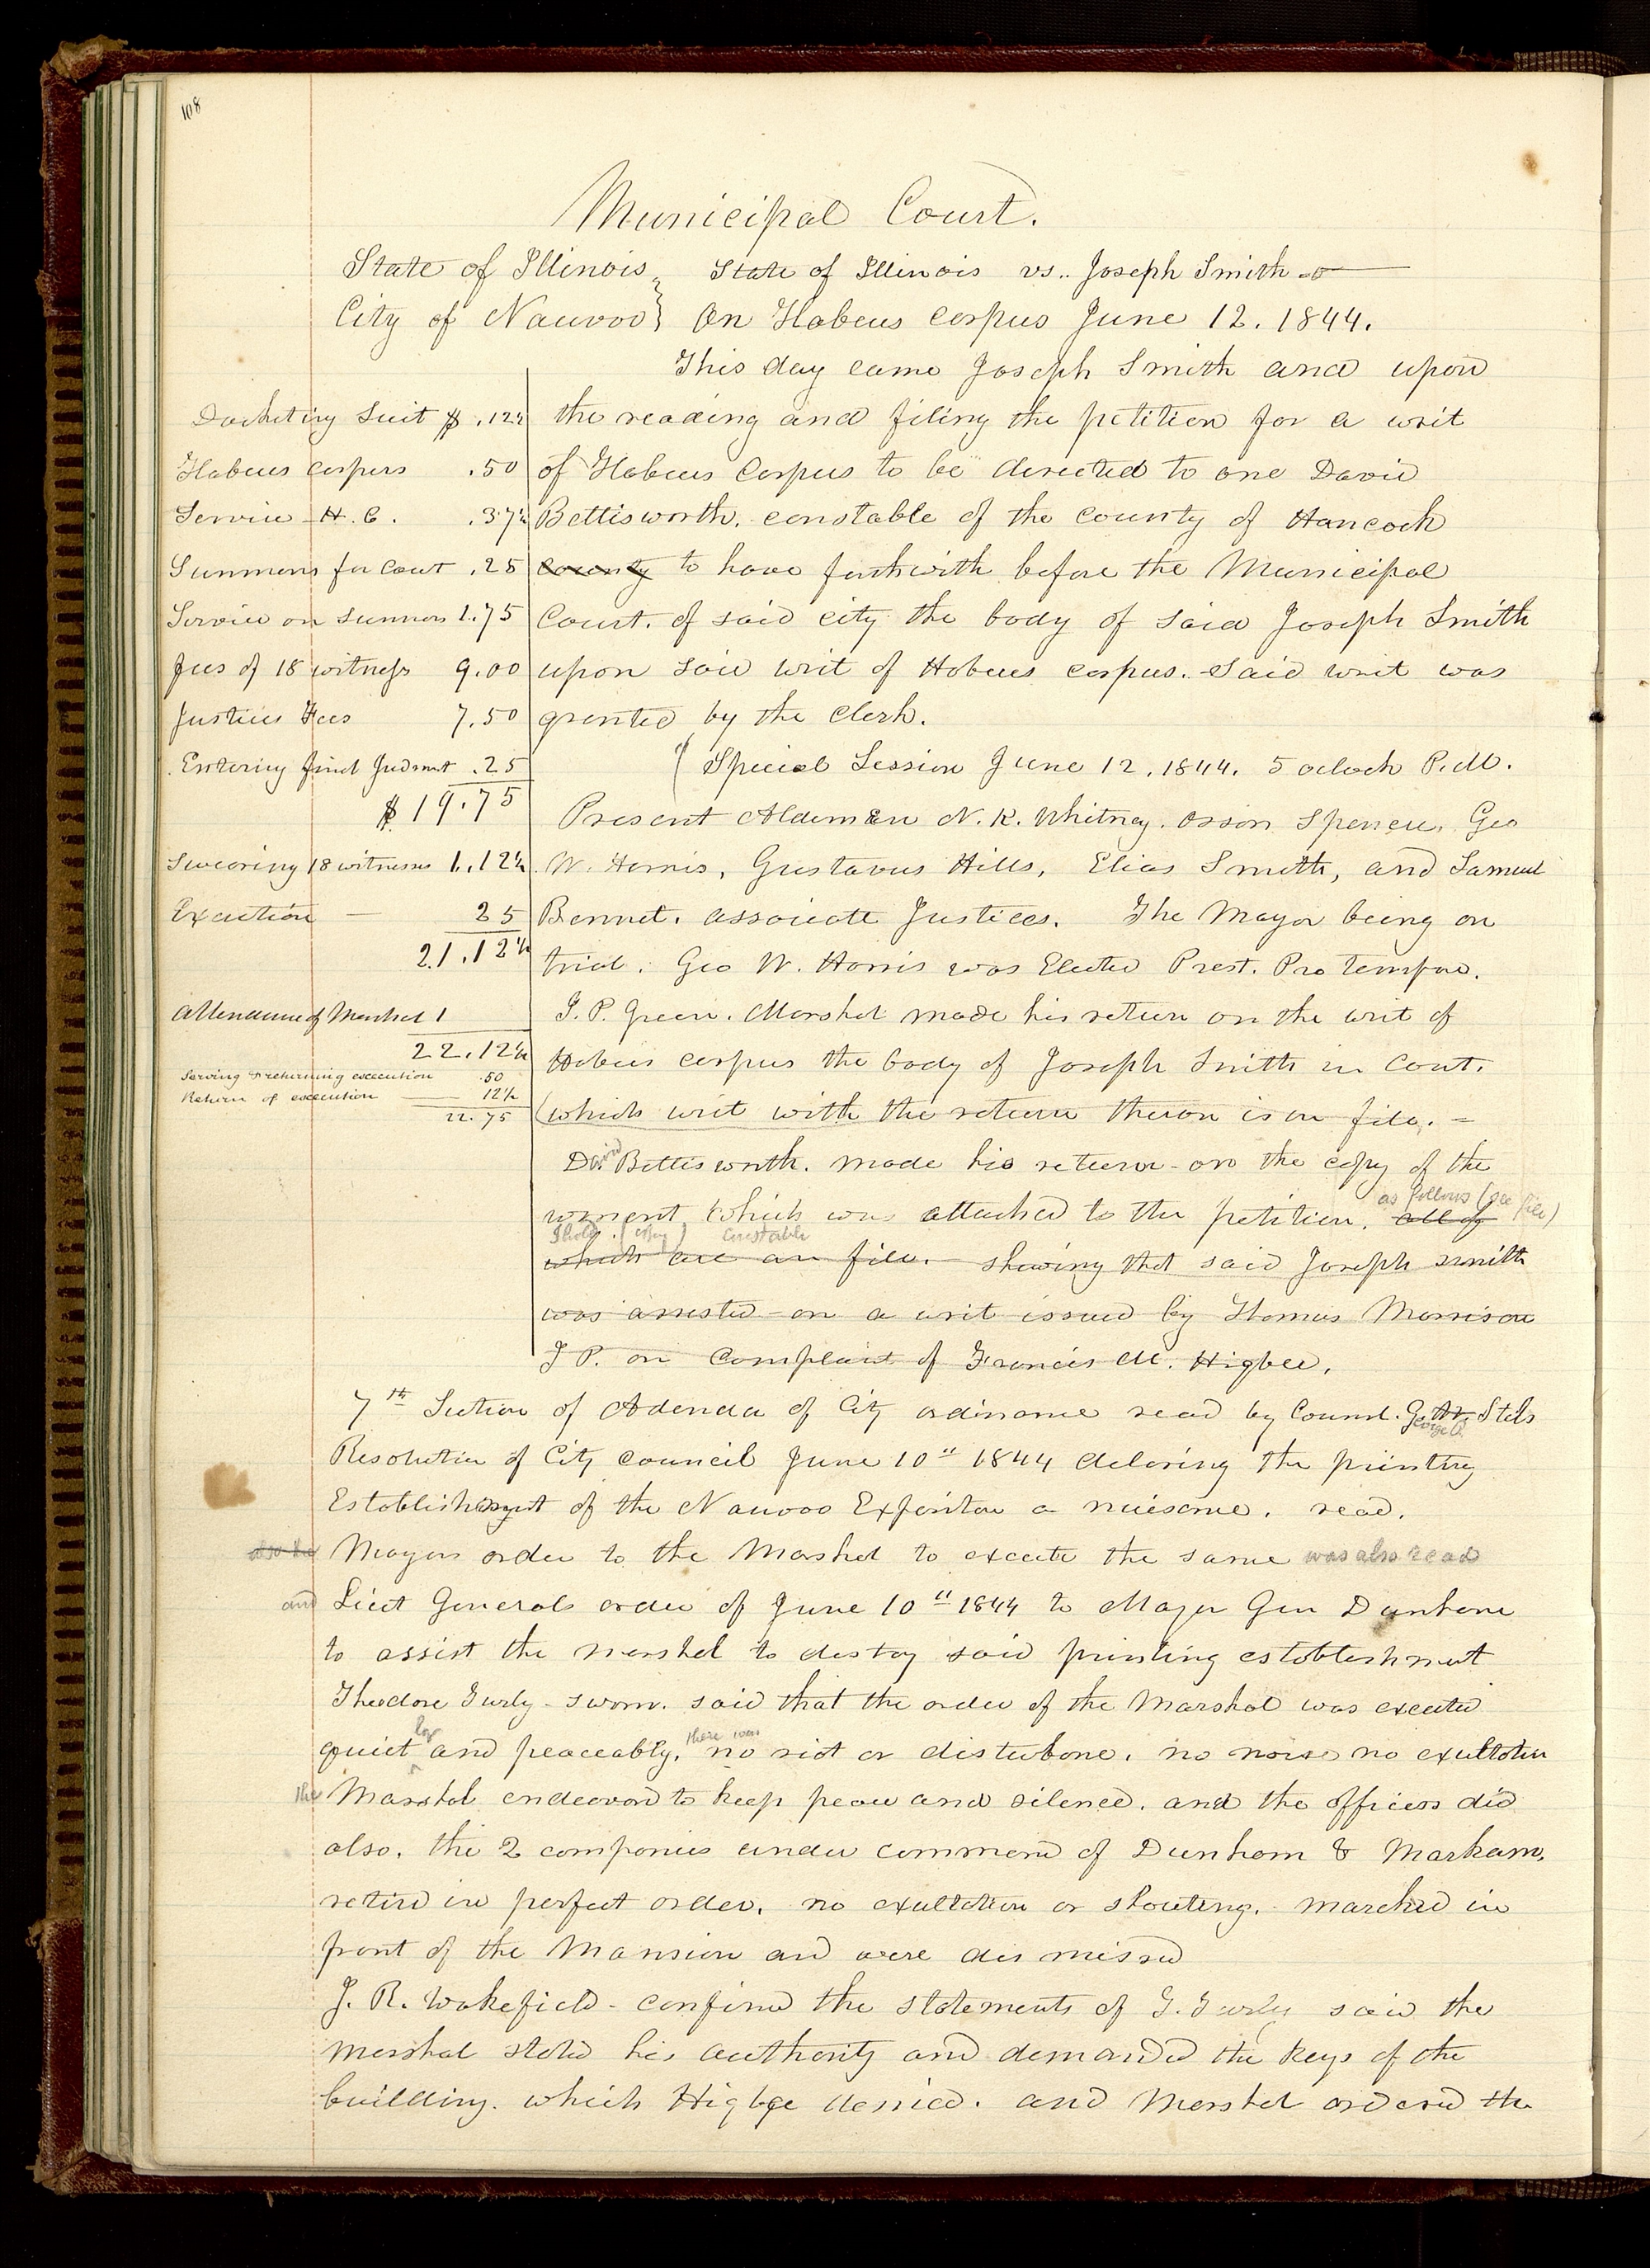 108
Municipal Court.
State of Illinois } State of Illinois vs.. Joseph Smith
City of Nauvoo } On Habeus Corpus June 12. 1844.
This day came Joseph Smith and upon
the reading and filing the petition for a writ
of Habeus Corpus to be directed to one David
Bettisworth. constable of the county of Hancock
county to have forthwith before the Municipal
Court. of said city the body of said Joseph Smith
upon said writ of Habeus corpus. Said writ was
granted by the Clerk.
Docketing Suit $ .12½
Habeus corpus .50
Service H. C. .37½
Summons for Court .25
Service on summons 1.75
fees of 18 witness 9.00
Justices Fees 7.50
Entering final Judmnt .25
$19.75
Swearing 18 witnesses 1.12½
Execution — 25
21.12½
Attendance of Marshal 1
22.12½
Serving & returning execution .50
Return of execution 12½
22.75
( Special Session June 12. 1844. 5 oclock P.M.
Present Aldermen N. K. Whitney. Orson Spencer, Geo
W. Harris, Gustavus Hills, Elias Smith, and Samuel
Bennet. associate Justices. The Mayor being on
trial. Geo W. Harris was Elected Prest. Pro tempore.
J. P. Green. Marshal made his return on the writ of
Habeus corpus the body of Joseph Smith in Court.
(which writ with the return theron is on file. =
David Bettisworth. made his return on the copy of the
as follows (see file)
warrent which was attached to the petition. all of
(Copy) Constable
which are on file. shewing that said Joseph smith
was arrested on a writ issued by Thomas Morrison
J P. on Complaint of Francis M. Higbee.
7th Section of Adenda of City ordinance read by Counsl. G. Stils
George P.
Resolution of City Council June 10" 1844 declaring the printing
Establishment of the Nauvoo Expositor a nuisance. read.
also the Mayors order to the Marshal to execute the same was also read
and Lieut Generals order of June 10" 1844 to Major Gen Dunham
to assist the marshal to destroy said printing establishment
Theodore Turly - sworn. said that the order of the Marshal was executed
ly there was
quiet and peaceably. no riot or disturbance. no noise no exultation
the Marshal endeavored to keep peace and silence. and the officers did
also. the 2 companies under command of Dunham & Markam,
retired in perfect order. no exultation or shouting. marched in
front of the Mansion and were dismissed
J. R. Wakefield - confirmed the statements of T. Turly said the
Marshal stated his authority and demanded the keys of the
building. which Higbee denied. and Marshal ordered the